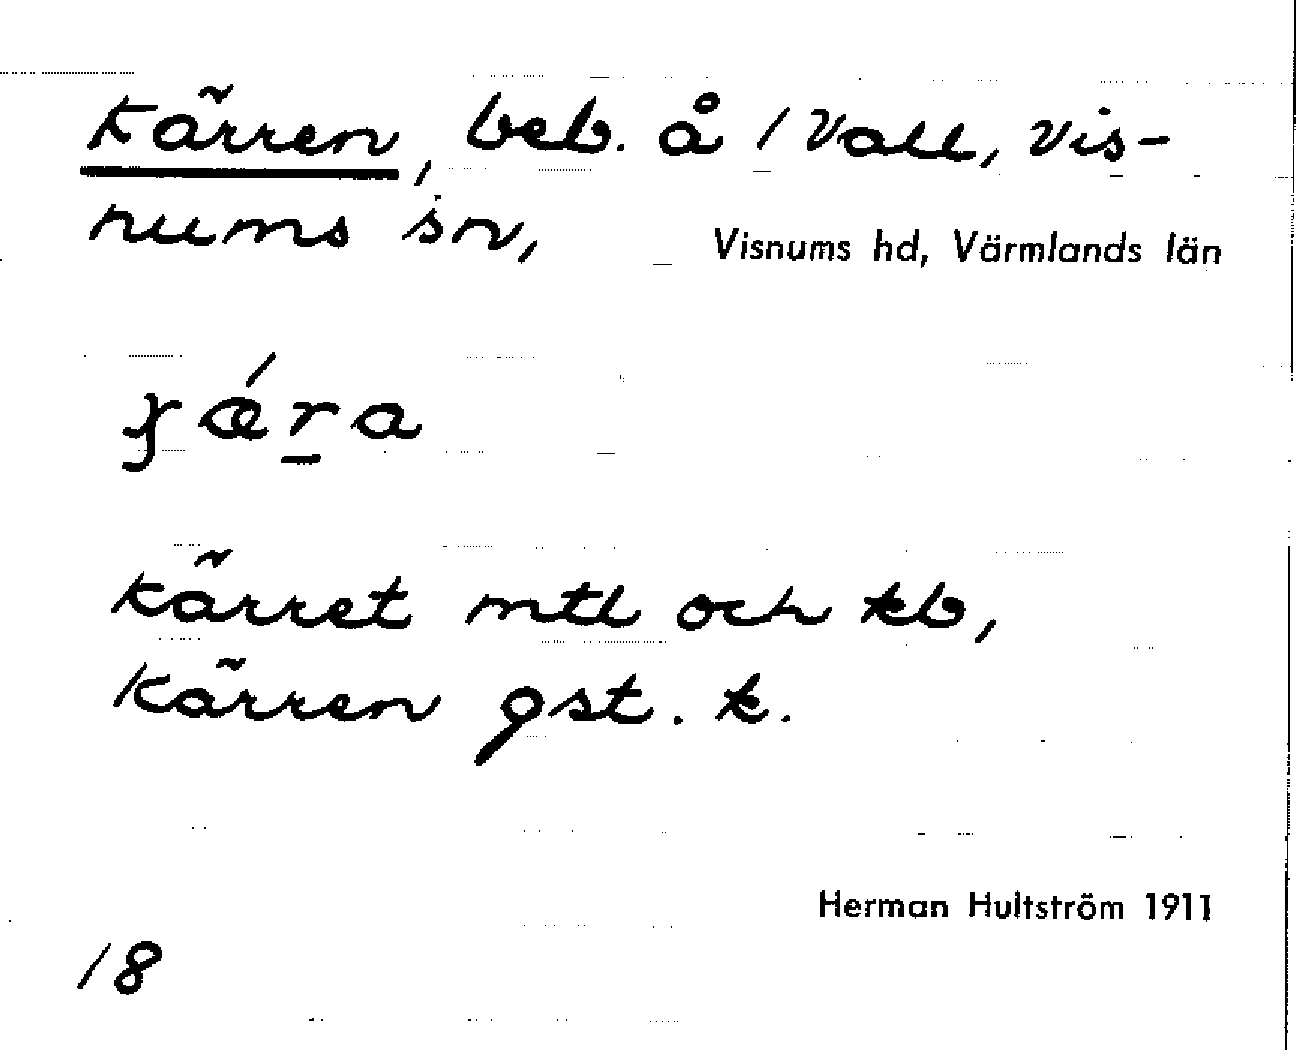 Kärren, beb. å 1 Vall, Vis-
nums sn, Visnums hd, Värmlands län
kärret mtl och kb,
Kärren gst. k.
Herman Hultström 1911
18